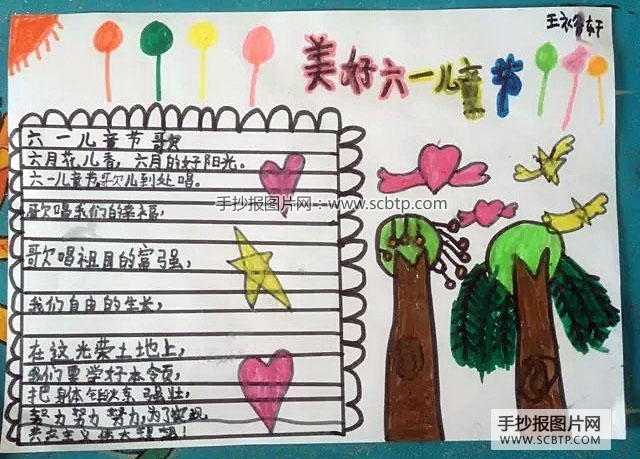 美好六一儿童节
六一儿童节歌
六月花儿香，六月的好阳光。
六一儿童节歌儿到处唱。
手抄报图片网：www.scbtp.com
歌唱我们的幸福，
歌唱祖国的富强，
我们自由的生长，
在这光荣土地上，
我们要学好本领，
把身体锻炼 强壮，
努力努力努力，为了实现，
共产主义伟大理想！
手抄报图片网
WWW.SCBTP.COM